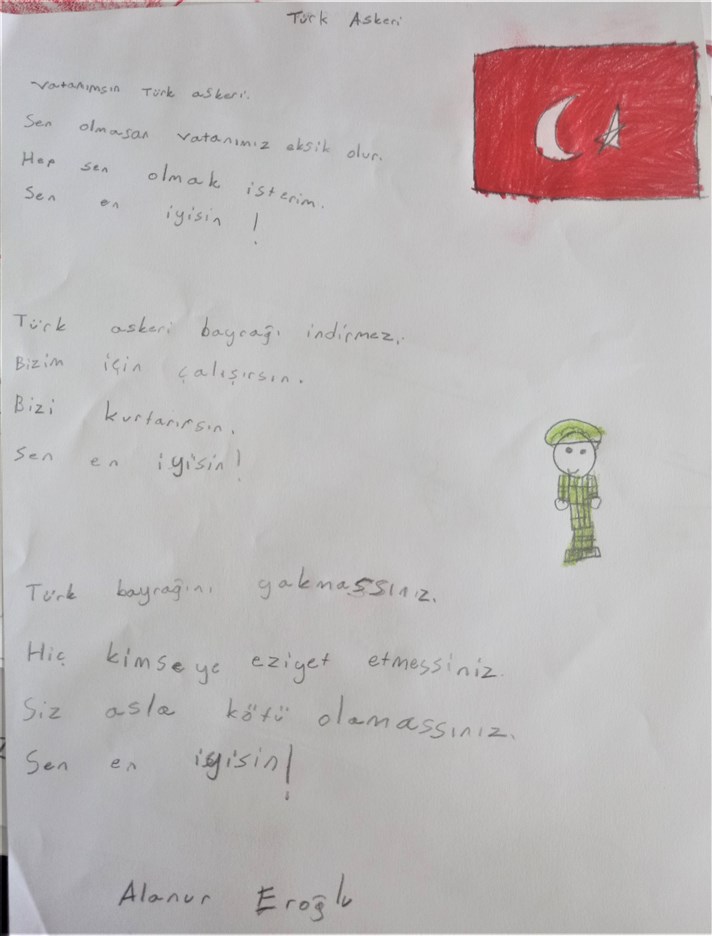 Türk Askeri
Vatanımsın Türk askeri.
Sen olmasan vatanımız eksik olur.
Hep sen olmak isterim.
Sen en iyisin!
Türk askeri bayrağı indirmez.
Bizim için çalışırsın.
Bizi kurtarırsın.
Sen en iyisin!
Türk bayrağını yakmassınız.
Hiç kimseye eziyet etmessiniz.
Siz asla kötü olamassınız.
Sen en iyisin!
Alanur Eroğlu